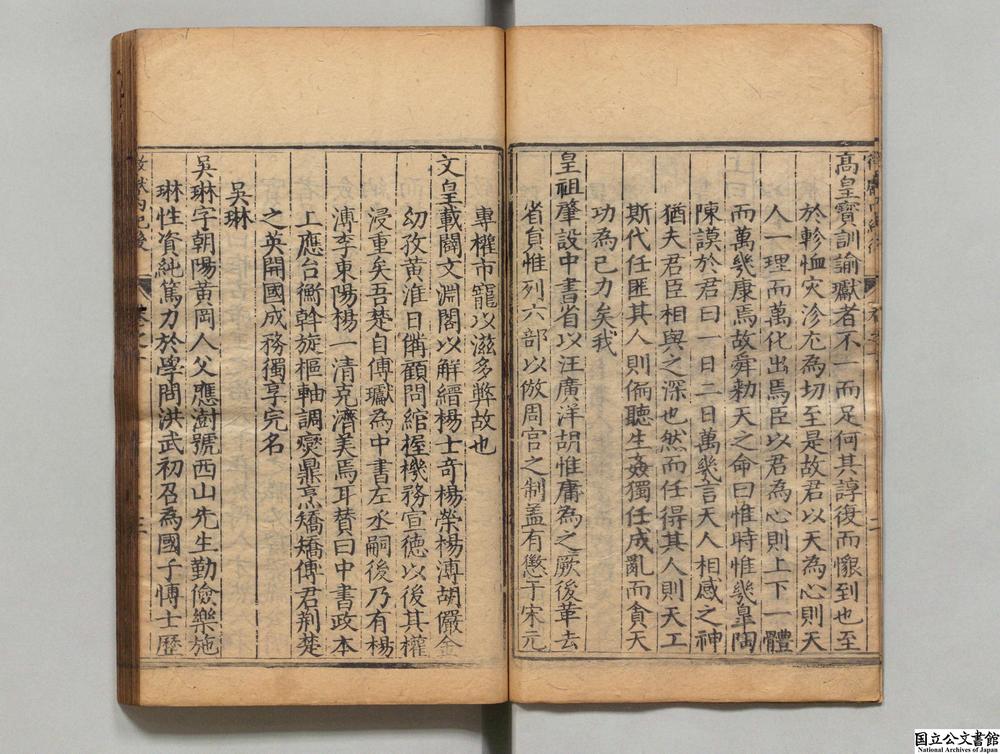 高皇寳訓諭瓛者不一而足何其諄復而懷到也至
於軫恤灾沴尤為切至是故君以天為心則天
人一理而萬化出焉臣以君為心則上下一體
而萬幾康焉故舜勑天之命曰惟時惟幾皐陶
陳謨於君曰一日二日萬幾言天人相感之神
猶夫君臣相與之深也然而任得其人則天工
斯代任匪其人則偏聽生姦獨任成亂而貪天
功為已力矣我
皇祖肇設中書省以汪廣洋胡惟庸為之厥後革去
省貟惟列六部以倣周官之制盖有懲于宋元
專權市寵以滋多弊故也
文皇載闢文淵閣以解縉楊士竒楊榮楊溥胡儼金
幼孜黃淮日備顧問綰握機務宣德以後其權
浸重矣吾楚自傅瓛為中書左丞嗣後乃有楊
溥李東陽楊一清克濟美焉耳賛曰中書政本
上應台衡斡旋樞軸調爕鼎烹矯矯傅君荆楚
之英開國成務獨享完名
吳琳
吳琳字朝陽黃岡人父應澍號西山先生勤儉樂施
琳性資純篤力於學問洪武初召為國子博士歷
国立公文書館
National Archives of Japan